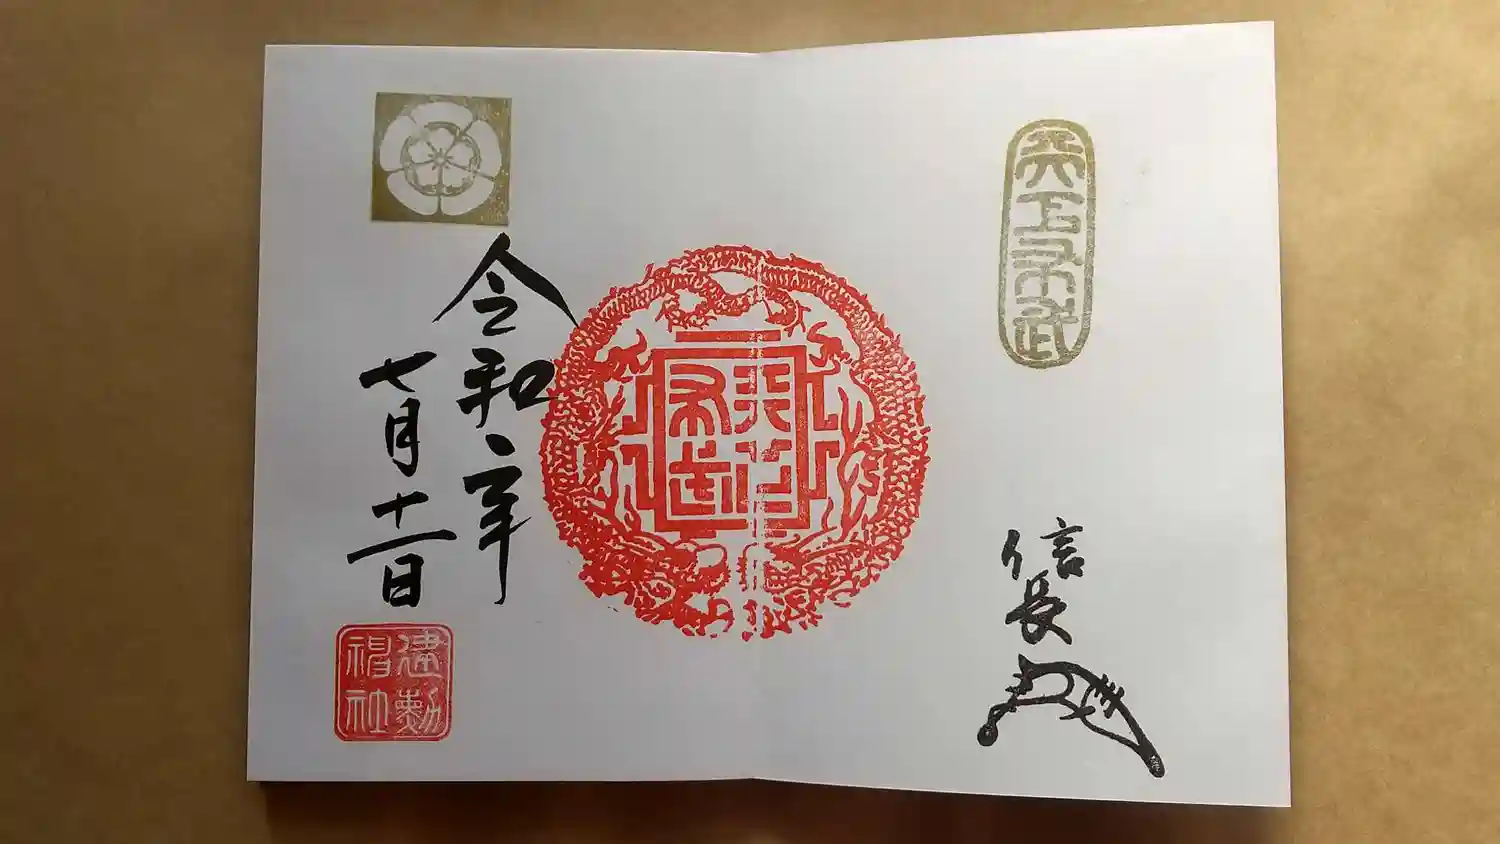 天下布武
信長
天下布武
令和
七月十一日
建勲神社